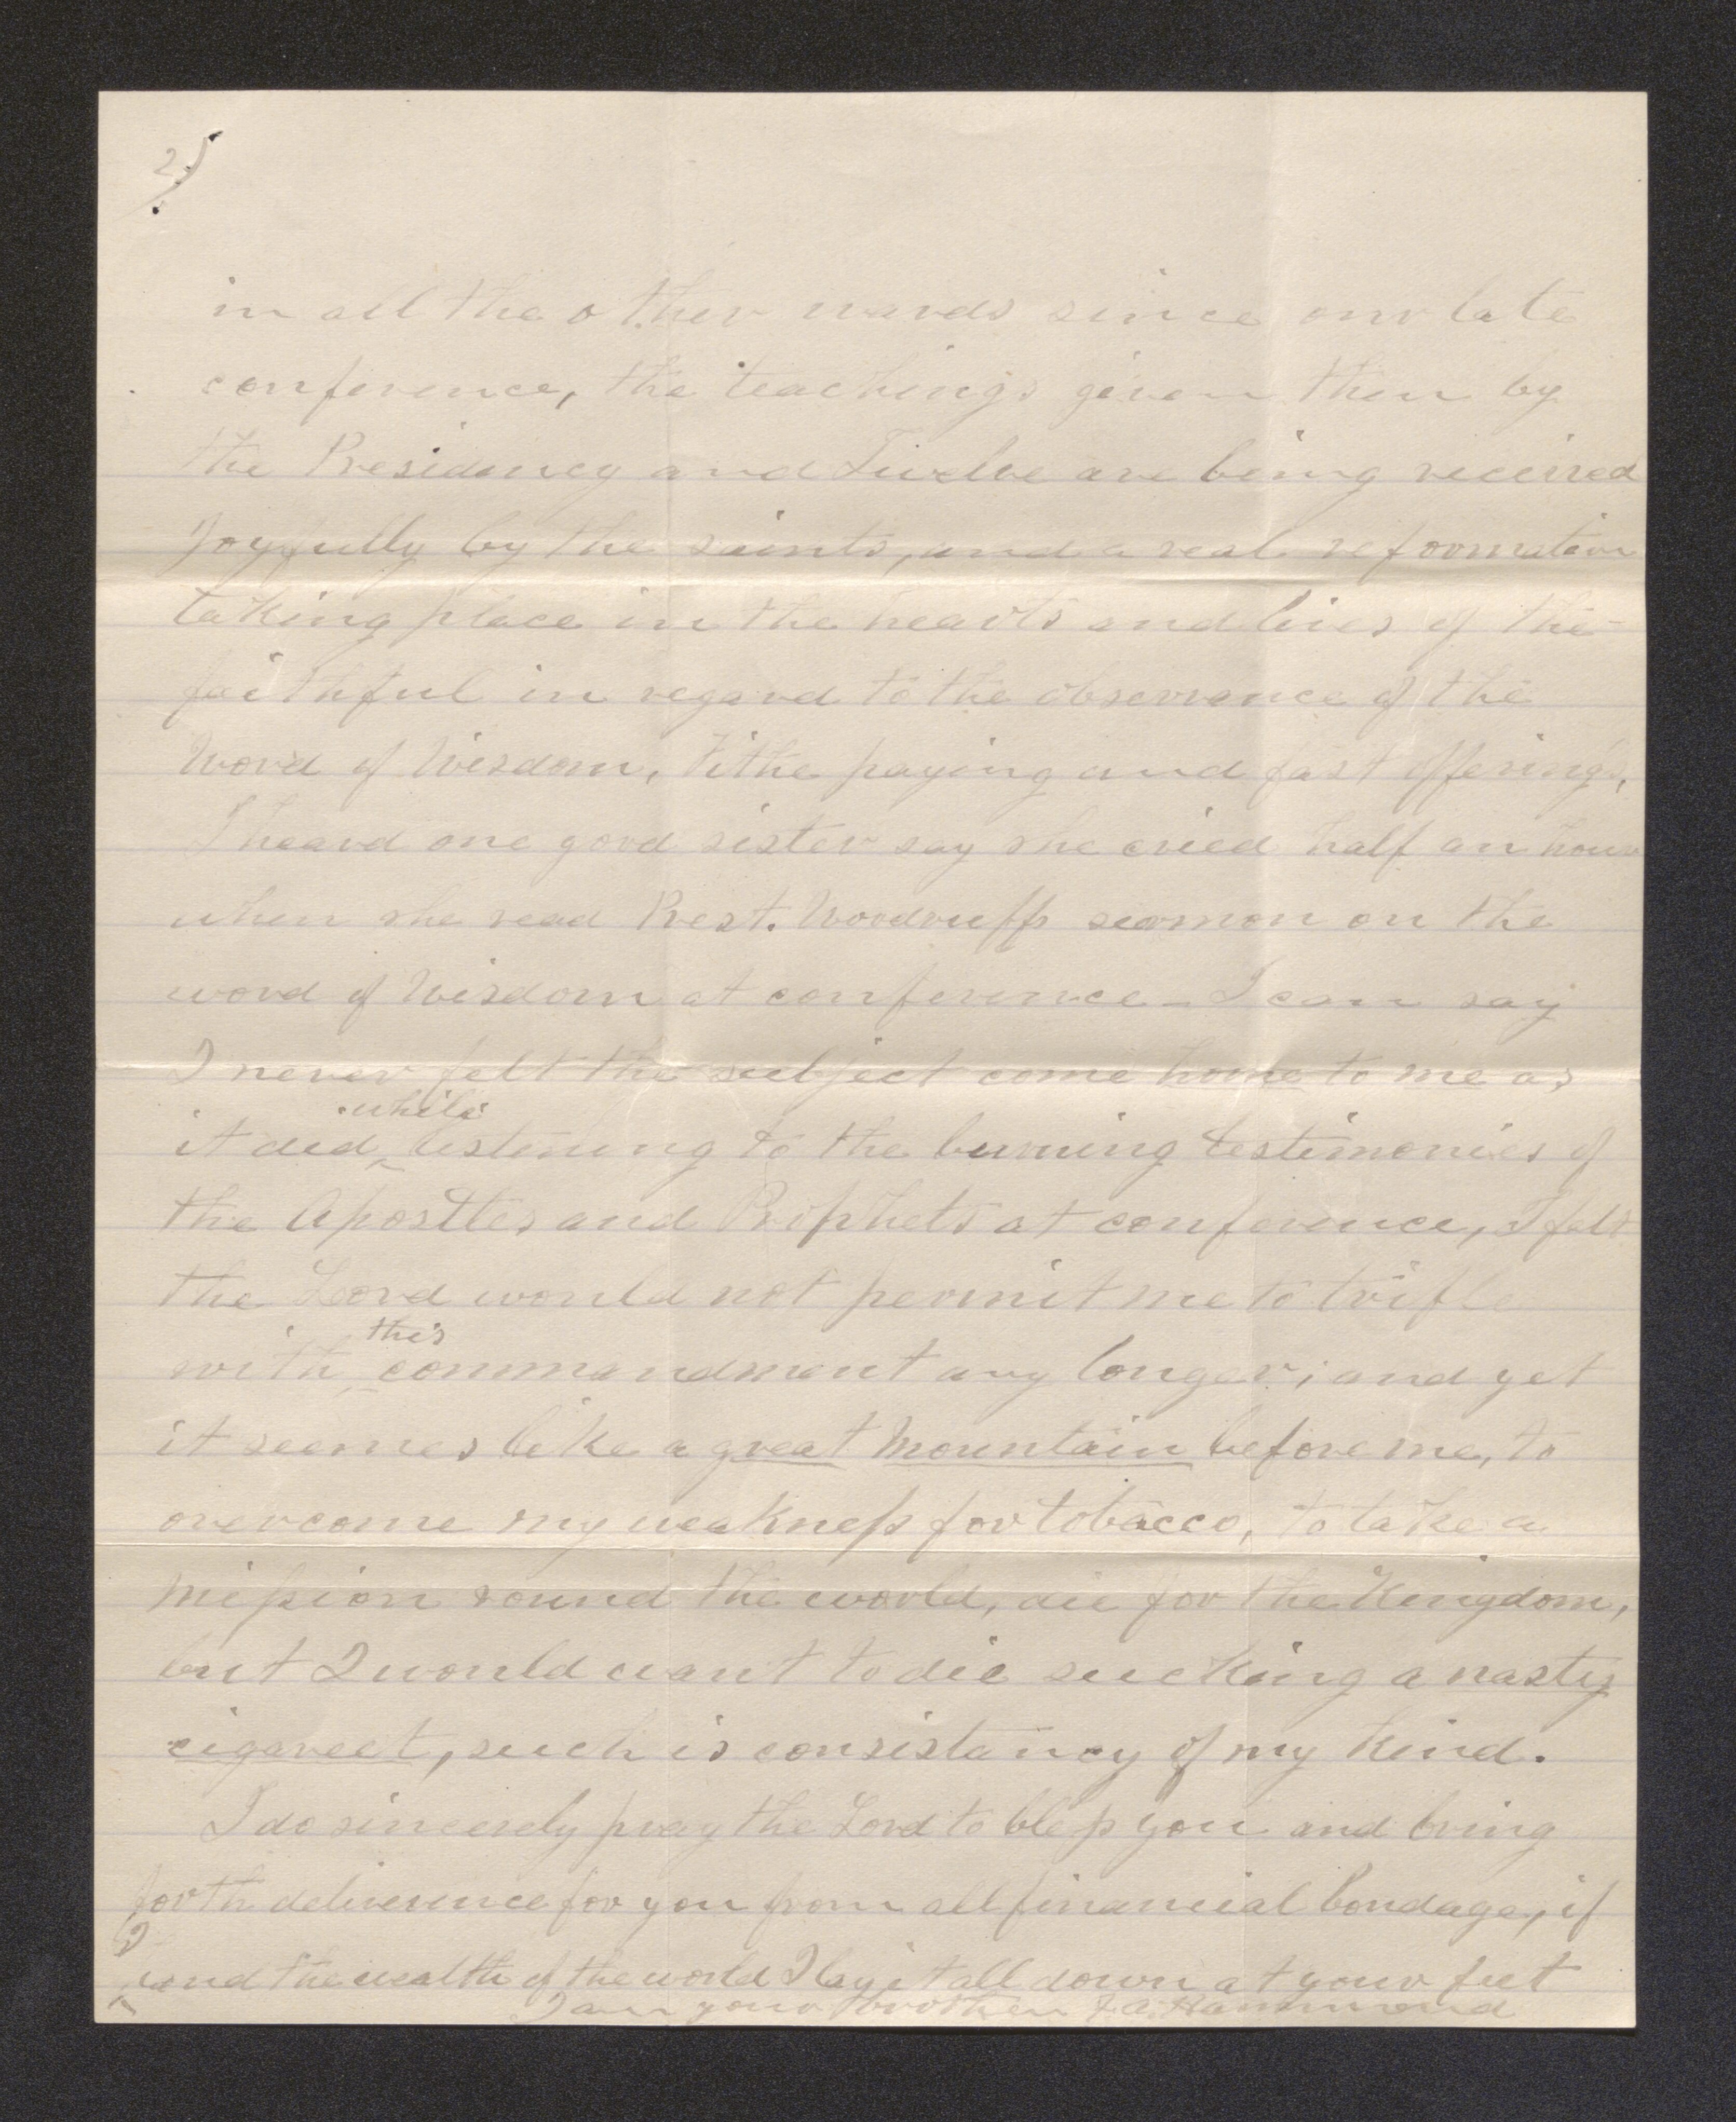 2)
in all the other wards since our late
conference, the teachings given then by
the Presidency and Twelve are being received
joyfully by the saints, and a real reformation
taking place in the hearts and lives of the
faithful in regard to the observance of the
Word of Wisdom, Tithe paying and fast offerings,
I heard one good sister say she cried half an hour
when she read Prest. Woodruffs seormon on the
word of Wisdom at conference - I can say
I never felt the subject come home to me as
it did while listening to the burning testimonies of
the Apostles and Prophets at conference, I felt
the Lord would not permit me to trifle
with this commandment any longer; and yet
it seemes like a great mountain before me, to
overcome my weakness for tobacco, to take a
mission round the world, die for the Kingdom,
but I would want to die sucking a nasty
cigareet, such is consistancy of my kind.
I do sincerely pray the Lord to bless you and bring
forth deliverence for you from all financial bondage, if
I owned the wealth of the world I lay it all down at your feet
I am your brother F. A. Hammond